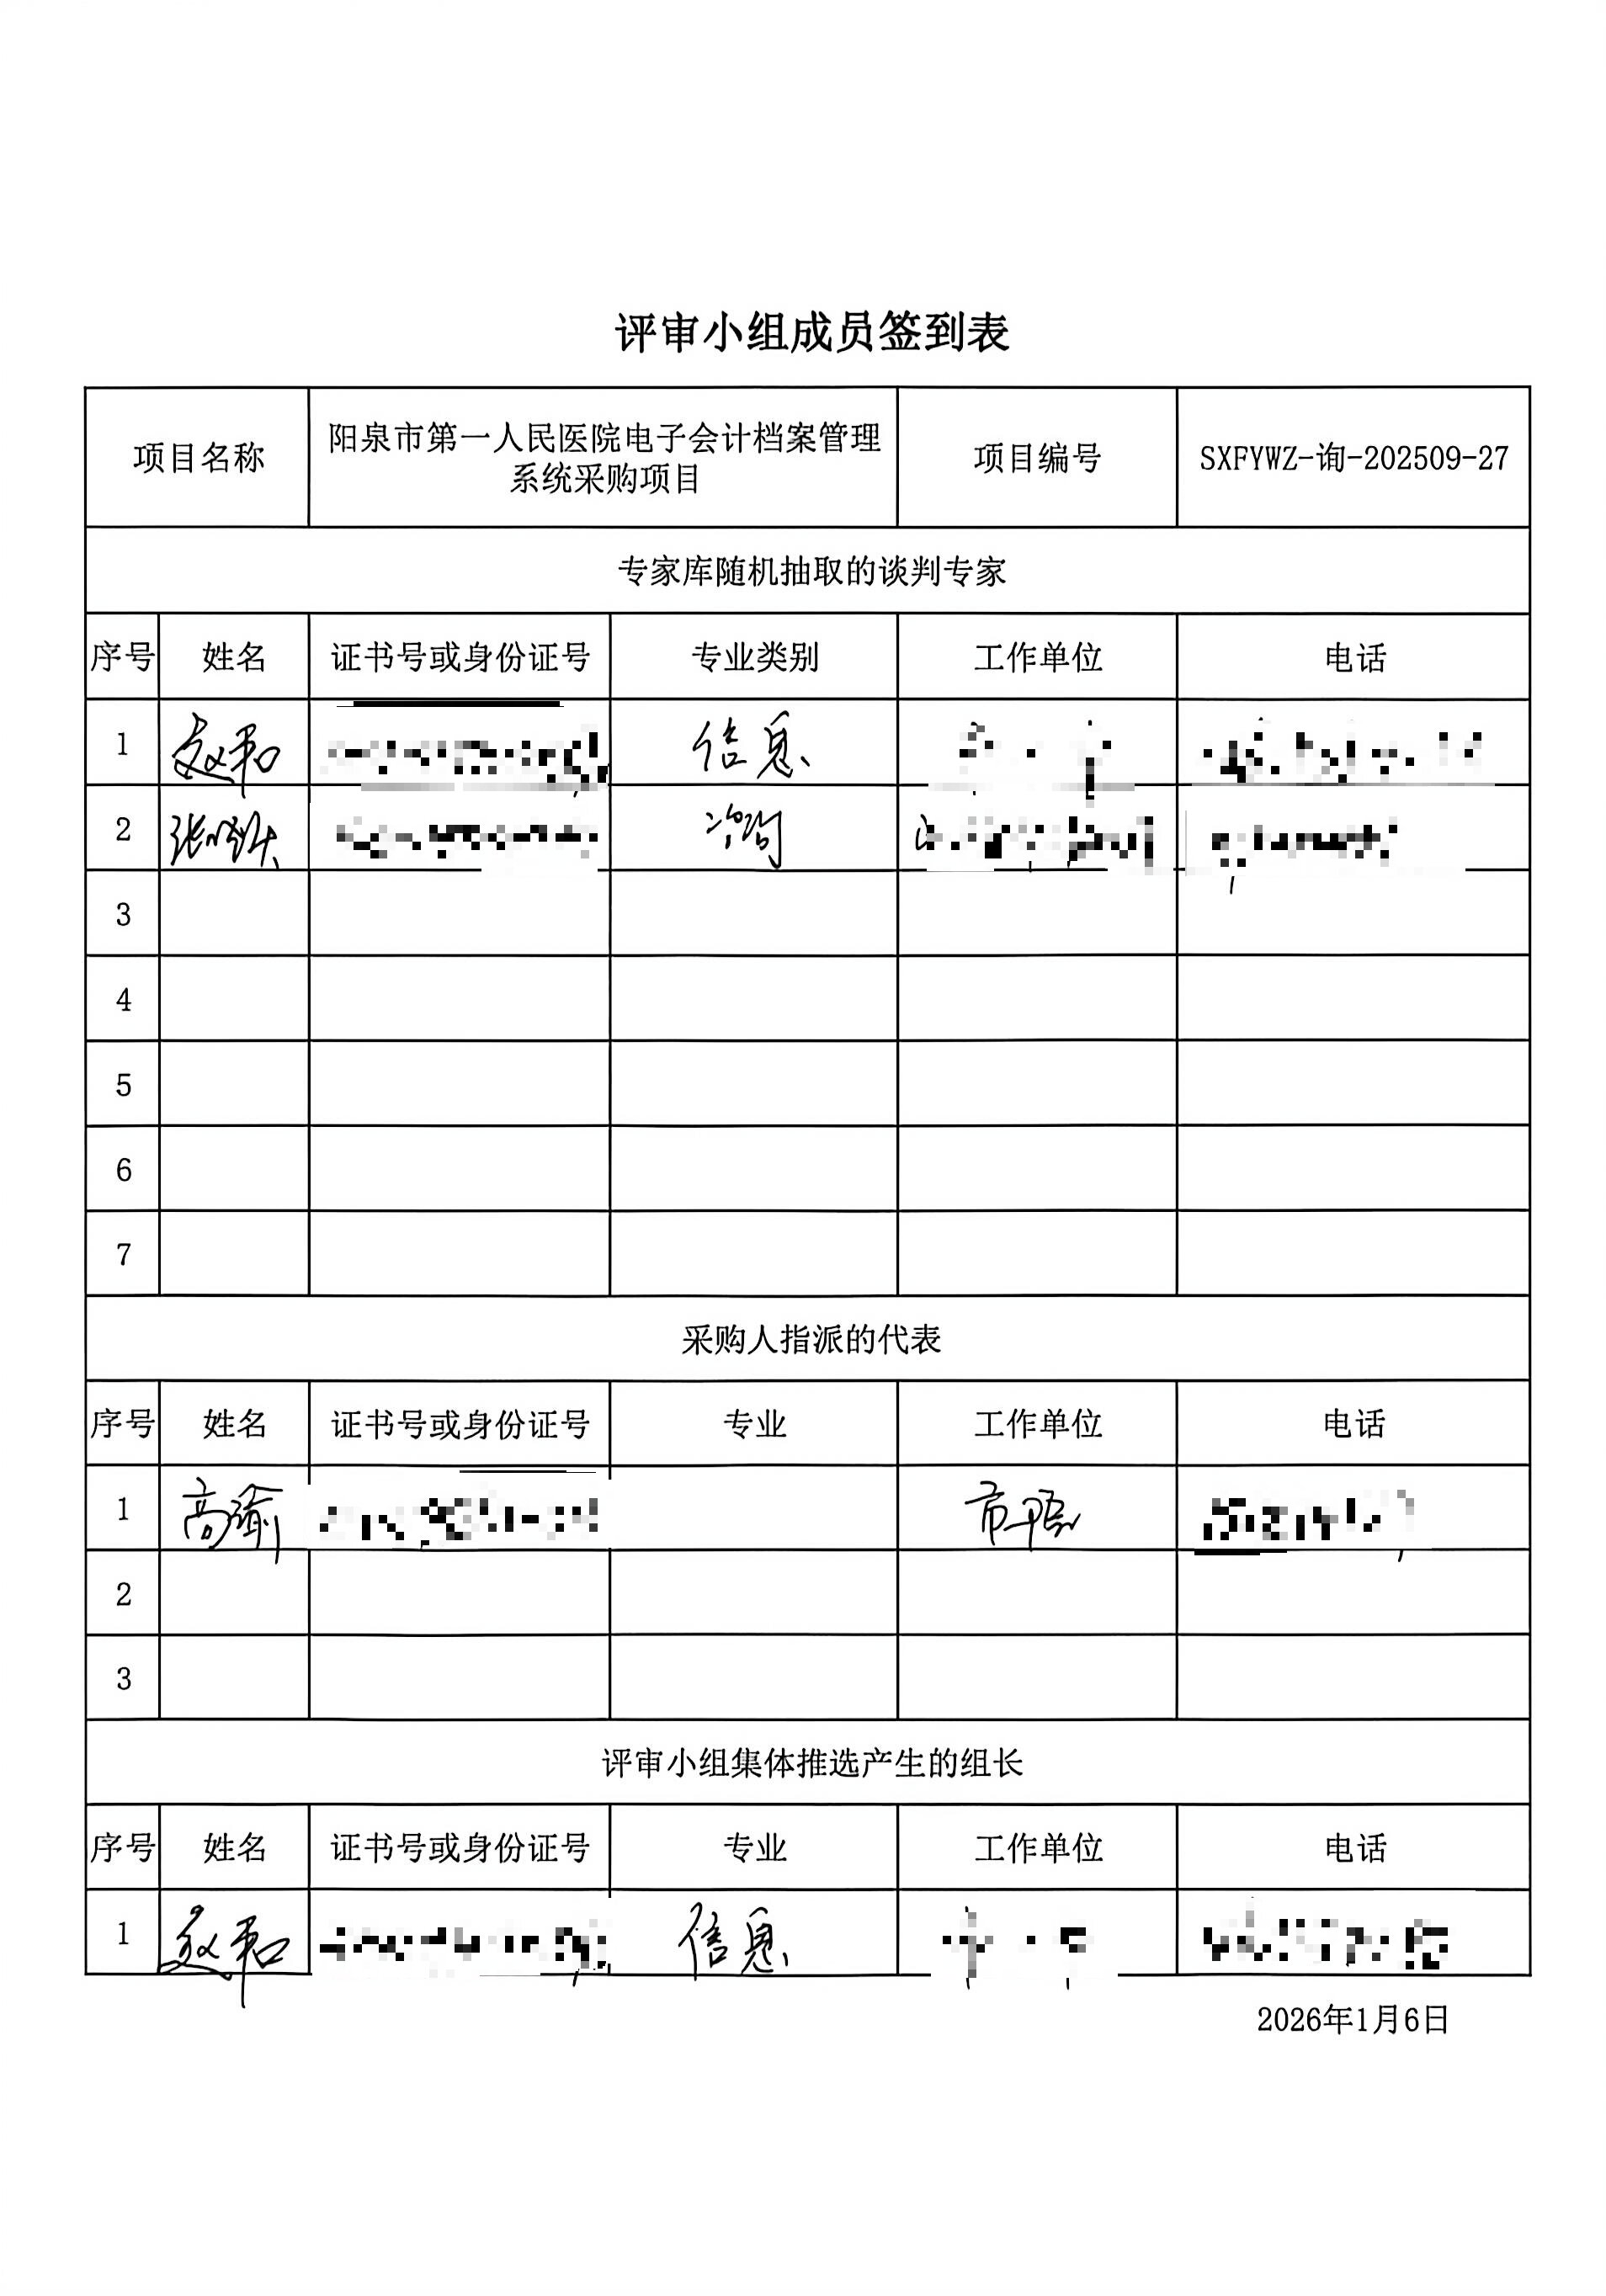 评审小组成员签到表
项目名称 阳泉市第一人民医院电子会计档案管理系统采购项目 项目编号 SXFYWZ-询-202509-27
专家库随机抽取的谈判专家
序号 姓名 证书号或身份证号 专业类别 工作单位 电话
1 信息
2 咨询
3
4
5
6
7
采购人指派的代表
序号 姓名 证书号或身份证号 专业 工作单位 电话
1 高瑜
2
3
评审小组集体推选产生的组长
序号 姓名 证书号或身份证号 专业 工作单位 电话
1 信息
2026年1月6日